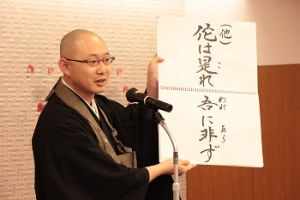 (他)
佗は是れ
これ
吾に非ず
われ
あら